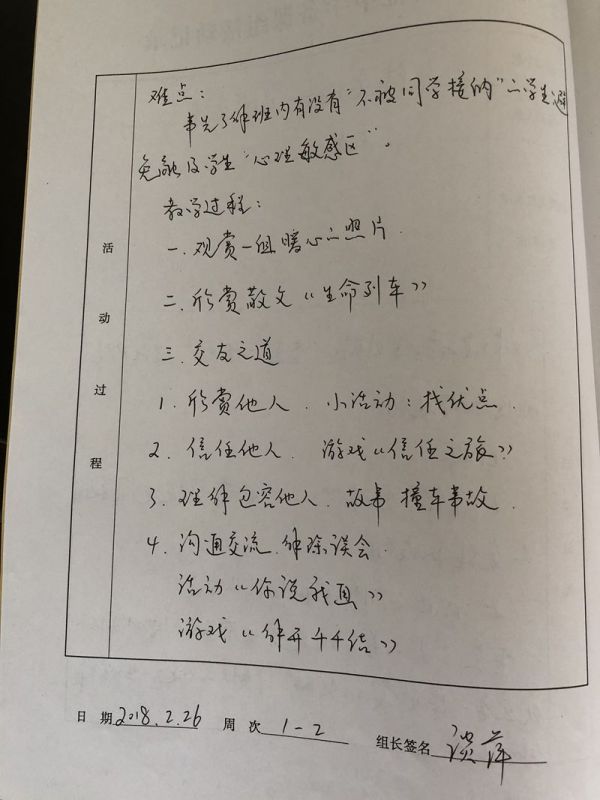 难点：
事先了解班内有没有“不被同学接纳”的学生避
免触及学生“心理敏感区”。
教学过程：
一.观赏一组暖心的照片.
二.欣赏散文《生命列车》
三.交友之道
1.欣赏他人.小活动：找优点.
2.信任他人.游戏《信任之旅》
3.理解包容他人.故事 撞车事故.
4.沟通交流.解除误会.
活动《你说我画》
游戏《解开千千结》
活动过程
日期 2018.2.26 周次 1-2 组长签名 谈萍